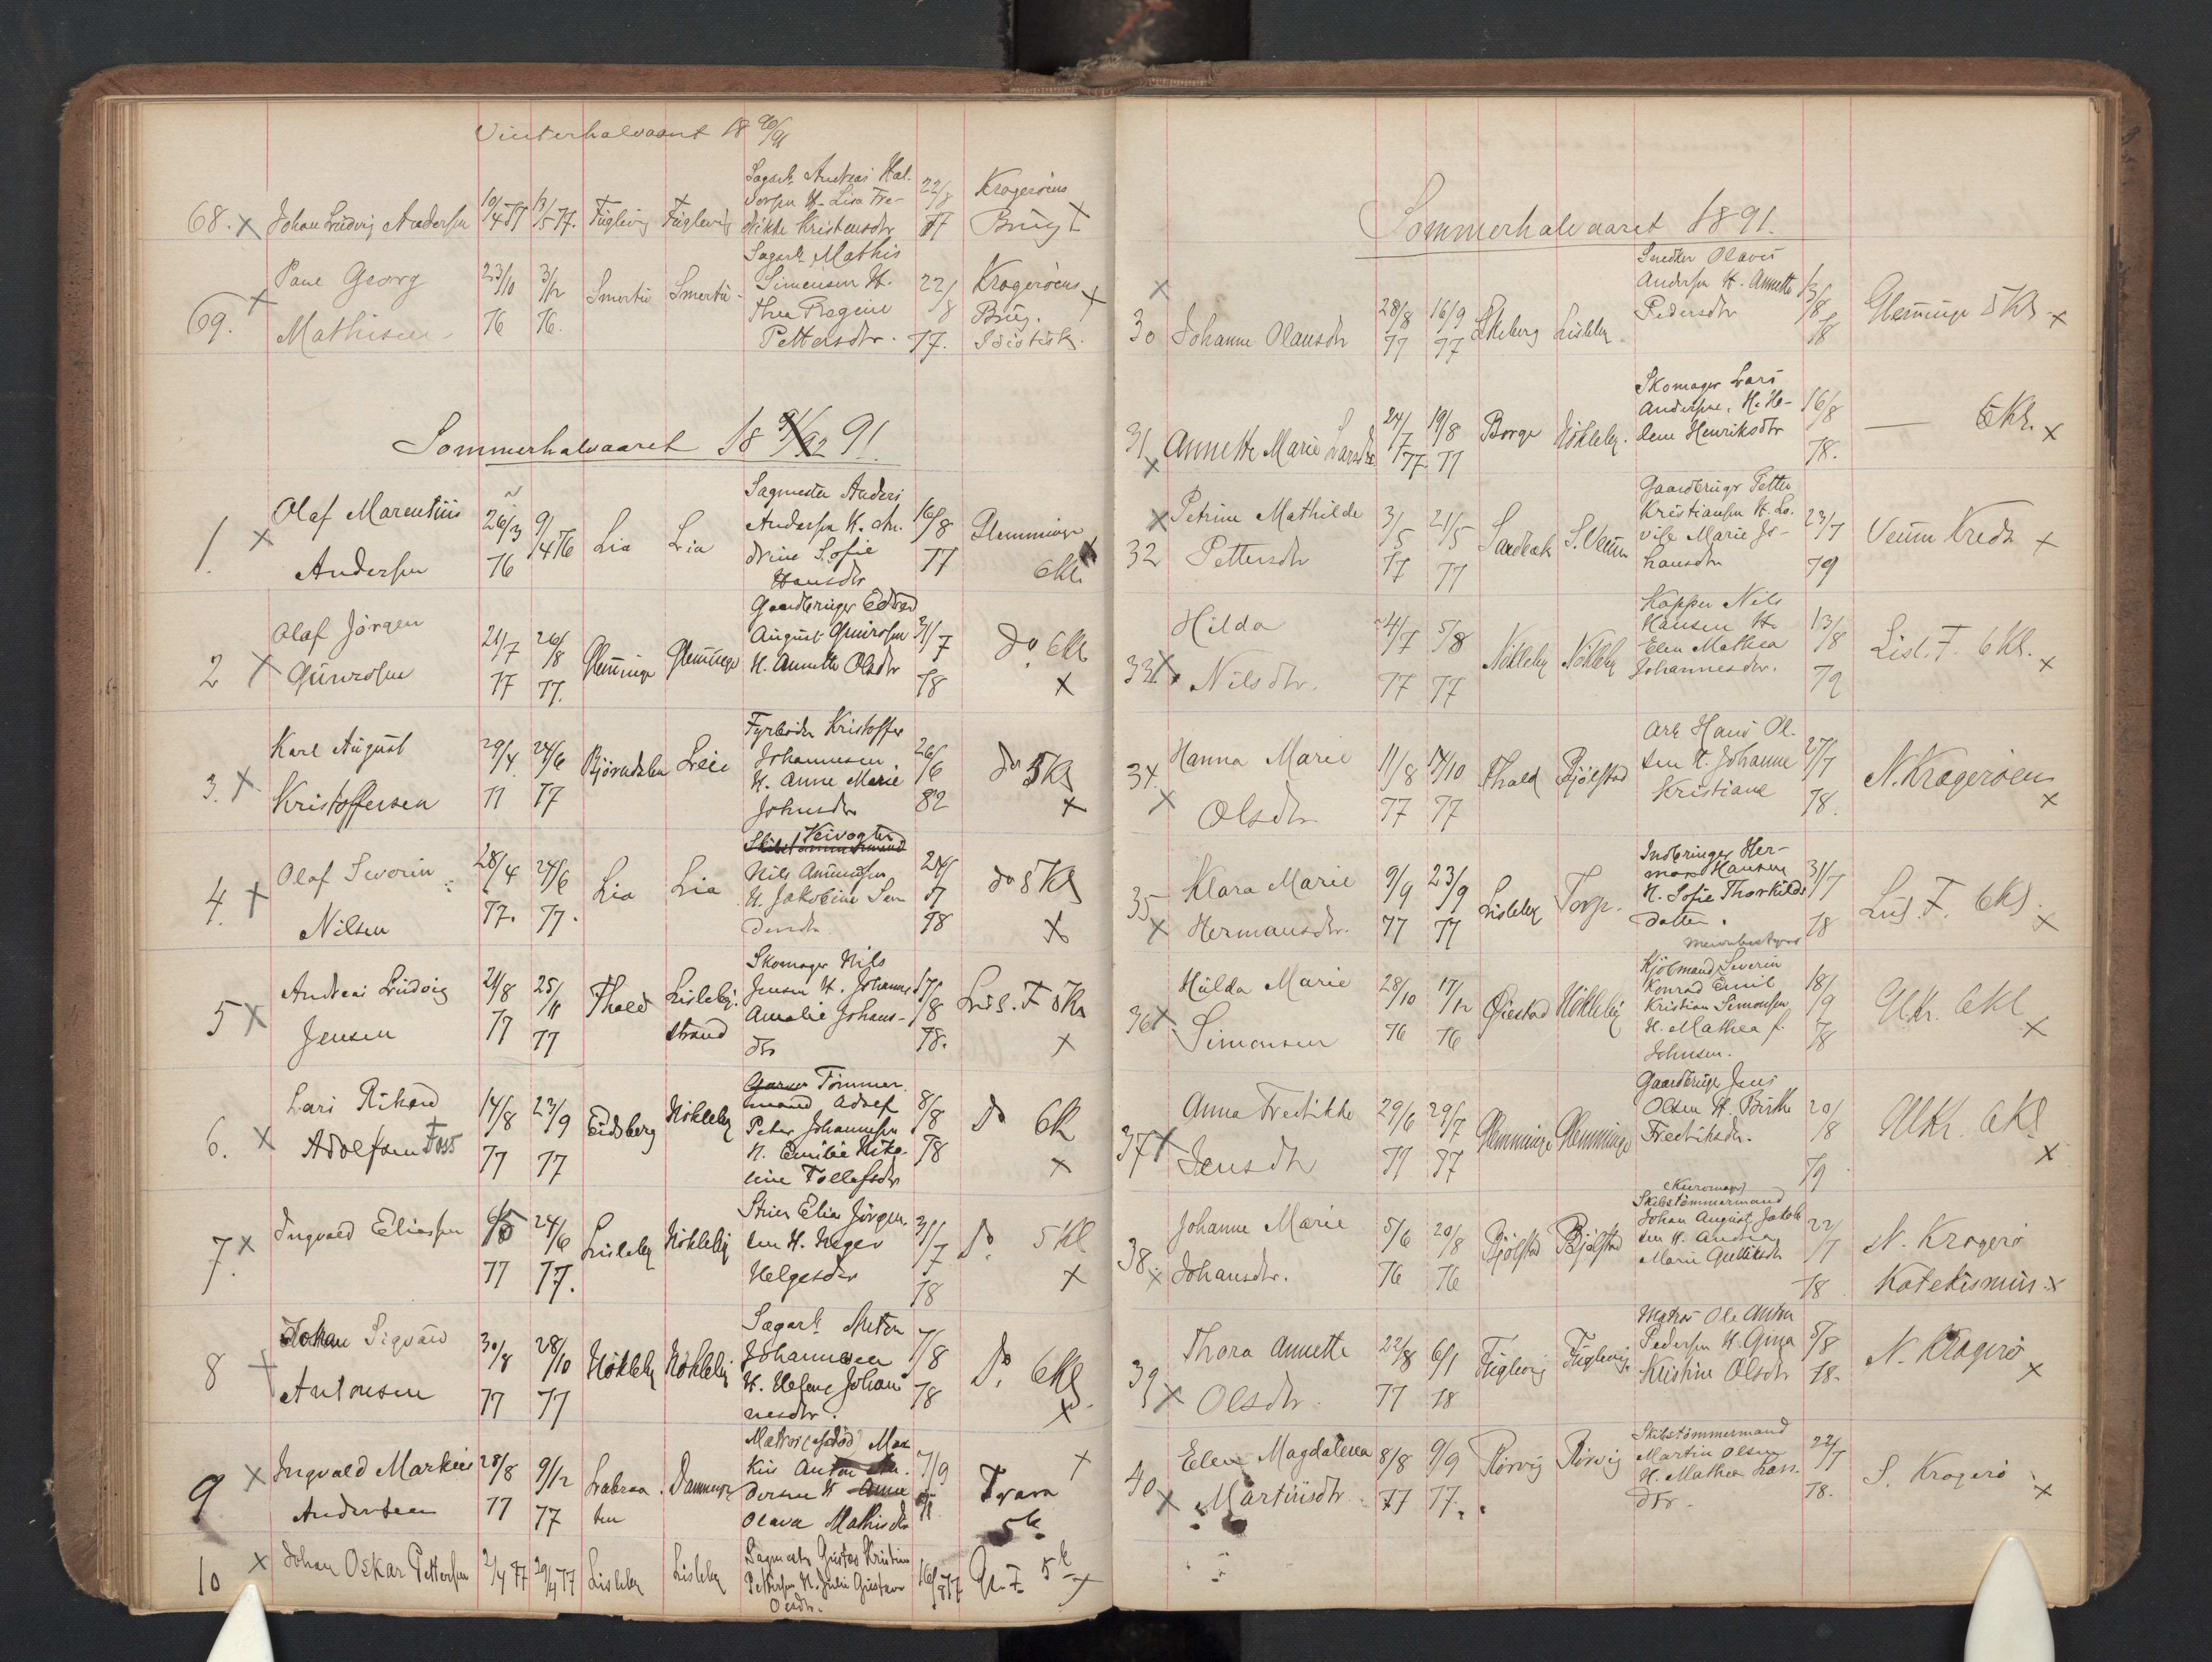 Vinterhalvaaret 18 90/91
68. x Johan Ludvig Andersen 10/4 77 13/5 77. Fuglevig Fuglevig Sagarb. Andreas Hal-
vorsen H. Lisa Fre-
dikke Kristensdtr 22/8 77 Kragerøens
Brug x
69. x Paul Georg
Mathisen 23/10 76 3/12 76. Smertu Smertu Sagarb. Mathis
Simensen H.
Thea Regine
Pettersdtr. 22/8 77. Kragerøens
Brug. x
Idiotisk.
Sommerhalvaaret 18 91/92 91.
1. x Olaf Marentius
Andersen 26/3 76 9/4 76 Lia Lia Sagmester Anders
Andersen H.
drine Sofie
Hansdtr 16/8 77 Glemminge
6Kl. x
2 x Olaf Jörgen
Gunrosen 21/7 77 26/8 77. Glemminge Glemminge Gaardbruger Edvard
August Gunrosen
H. Annette Olsdtr 31/7 78 do 6Kl
x
3. x Karl August
Kristoffersen 29/4 77 24/6 77 Björndalen Leie Fyrböder Kristoffer
Johannesen
H. Anne Marie
Johnsdtr 26/6 82 do 5Kl
x
4. x Olaf Severin
Nilsen 28/4 77. 24/6 77. Lia Lia Skibstömmermand Veivogter
Nils Amundsen
H. Jakobine
78 do 5Kl
x
5 x Andreas Ludvig
Jensen 21/8 77 25/11 77 Thald Lisleby.
strand Skomager Nils
Jensen H. Johanne
Amalie Johans-
dtr 17/8 78. Lisl. F 5Kl
x
6. x Lars Rikard
Adolfsen Foss 14/8 77 23/9 77 Eidsberg Nökleby Tömmer
mand Adolf
Peter Johannesen
H. Emilie
line Tollefsdtr 8/8 78 do 6Kl
x
7. x Ingvald Eliassen 6/5 77 24/6 77. Lisleby Nökleby Elias Jörgen-
sen H. Inger
Helgesdtr 31/7 78 Do. 5Kl
x
8 x Johan Sigvard
Antonsen 30/8 77 28/10 77 Nökleby Nökleby Sagarb. Anton
Johannesen
H. Helene Johan
nesdtr. 7/8 78 Do. 6Kl.
x
9 x Ingvald Markus
Andersen 28/8 77 9/12 77 Labraa-
ten Dammyr Matros (afdöd) Mar
kus Anton An-
dersen H Anne
Olava Mathisdtr 7/9 Trara
5Kl x
10 x Johan Oskar Pettersen 2/4 77 29/4 77 Lisleby Lisleby Sagmester Gustav Kristian
Pettersen H. Julie Gustava
Olsdtr. 16/8 77 Gl. F. 5Kl x
Sommerhalvaaret 1891.
30 x Johanne Olausdtr 28/8 77 16/9 77 Skeberg Lisleby Snedker Olaus
Andersen H. Annette
Pedersdtr 13/8 78 Glemminge 5Kl. x
31 x Annette Marie Larsdtr 24/7 77. 19/8 77 Borge Nökleby. Skomager Lars
Andersen. H. He-
lene Henriksdtr 16/8 78. — 6Kl. x
32 x Petrine Mathilde
Pettersdtr 3/5 77 21/5 77 Sandbak S. Veum Gaardbruger Petter
Kristiansen H. Lo-
vise Marie Jo-
hansdtr 23/7 79 Veum Kreds x
33 x Hilda
Nilsdtr. 4/7 77 5/8 77 Nökleby Nökleby Nils
Hansen H.
Elen Mathea
Johannesdtr. 13/8 79 Lisl. F. 6Kl.
x
34. x Hanna Marie
Olsdtr 11/8 77 14/10 77 Thald Bjölstad Arb Hans Ol-
sen H. Johanne
Kristiane 27/7 78. N. Kragerøen
x
35 x Klara Marie
Hermansdtr. 9/9 77 23/9 77 Lisleby Torp. Indbringer Her-
man Hansen
H. Sofie Thorkilds
datter. 31/7 78 Lisl. F. 6Kl.
x
36 x Hulda Marie
Simonsen 28/10 76 17/12 76 Öiestad Nökleby Kjöbmand Severin
Konrad Emil
Kristian Simonsen
H. Mathea f.
Johnsen. 18/9 78 Glkr. 6Kl
x
37 x Anna Fredrikke
Jensdtr 29/6 77 29/7 77 Glemminge Glemminge Gaardbruger Jens
Olsen H. Birthe
Fredriksdtr. 20/8 79 Glkr. 6Kl
x
38. x Johanne Marie
Johansdtr. 5/6 76 20/8 76 Bjölstad Bjölstad Skibstömmermand
Johan August Jakob
sen H. Andrea
Marie Gulliksdtr 22/7 78 N. Kragerö
Katekismus. x
39 x Thora Annette
Olsdtr. 22/8 77 6/1 78 Fuglevig Fuglevig. Matros Ole Anton
Pedersen H. Gina
Kristine Olsdtr 5/8 78. N. Kragerö
x
40 x Elen Magdalena
Martinsdtr. 8/8 77 9/9 77. Rörvig Rörvig Skibstömmermand
Martin Olsen
H. Mathea Lars-
dtr. 22/7 78. S. Kragerö
x